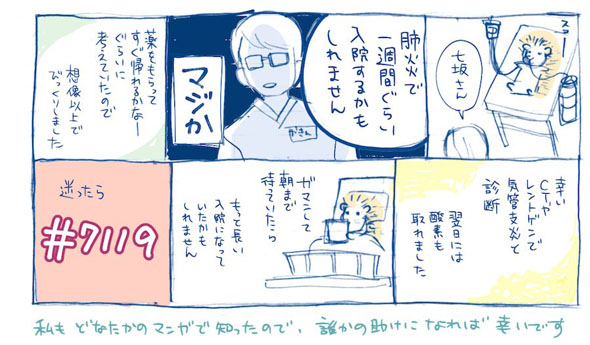 スコー
七坂さん
肺炎で
一週間ぐらい
入院するかも
しれません
かきん
マジか
薬をもらって
すぐ帰れるかなー
ぐらいに
考えていたので
想像以上で
びっくりしました
幸い
CTや
レントゲンで
気管支炎と
診断
翌日には
酸素も
取れました
ガマンして
朝まで
待っていたら
もっと長い
入院になって
いたかも
しれません
迷ったら
#7119
私もどなたかのマンガで知ったので、誰かの助けになれば幸いです